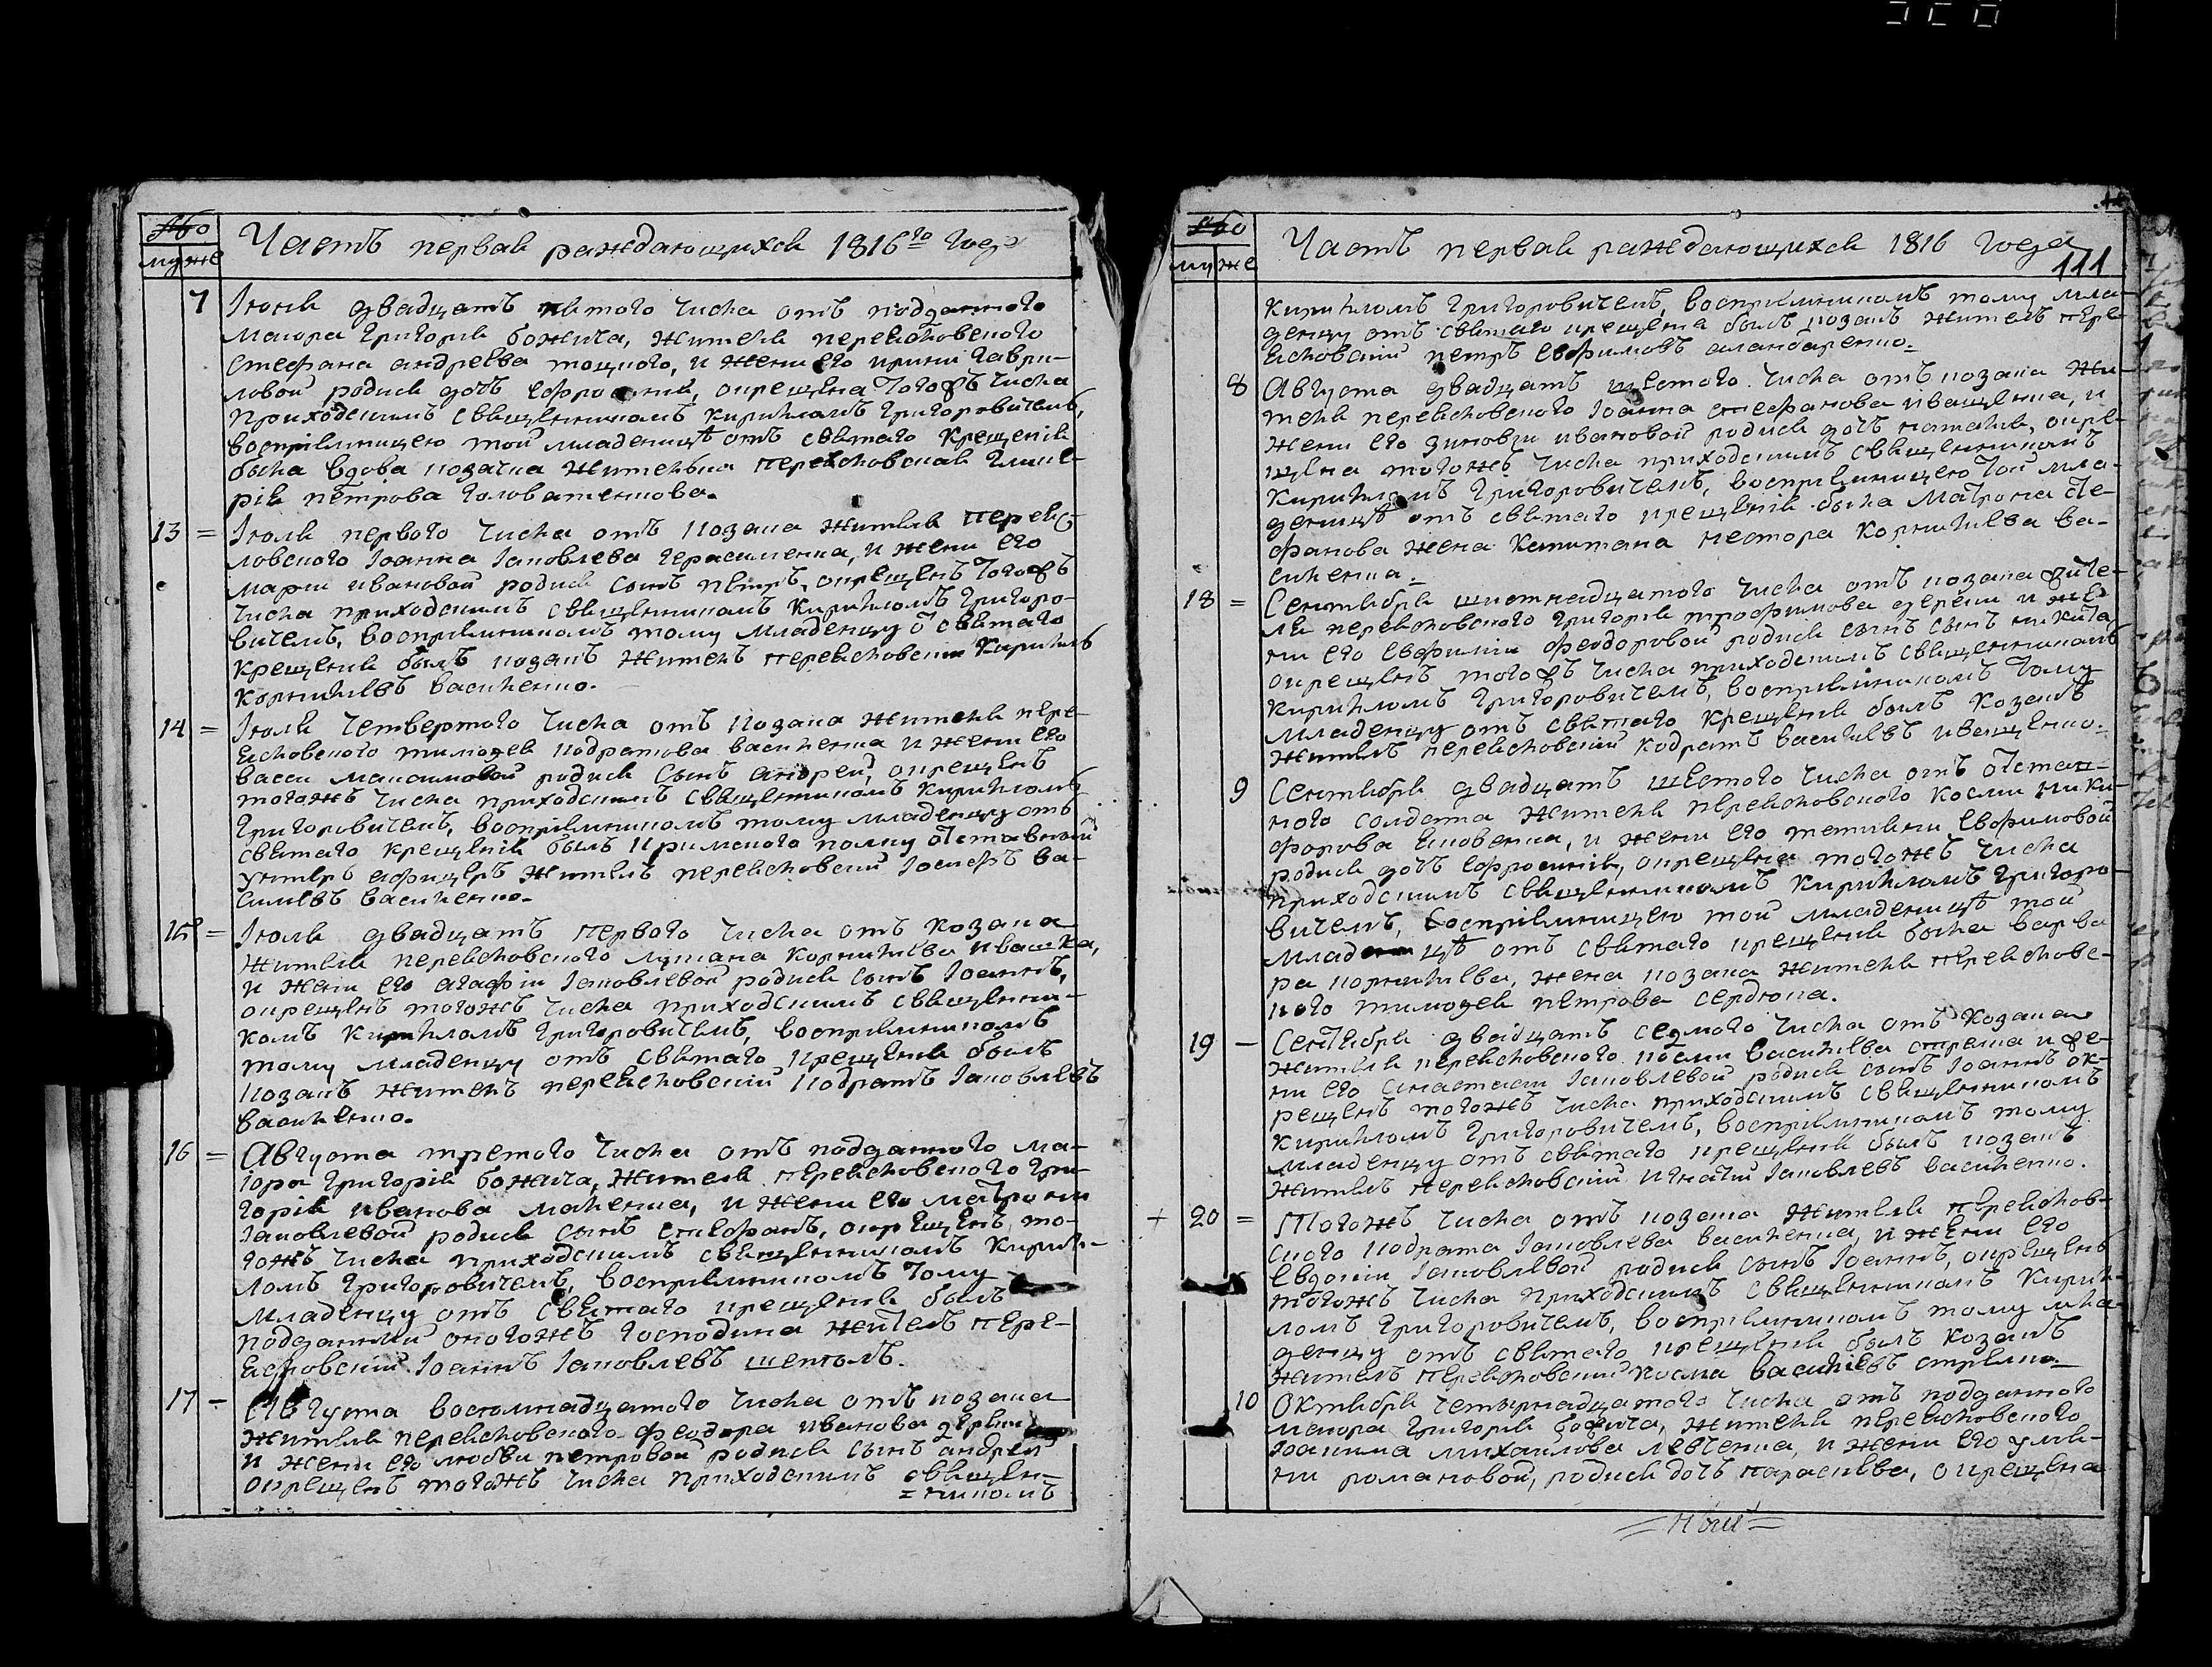 Часть первая раждающихся 1816го года
му же
7 Іюня двадцать пятого числа отъ подданного
маиора Григорія божича, жителя переясловского
стефана андреева тоцкого, и жены его ирины гаври-
ловой родися дочь ефросинія, окрещена тогожъ числа
приходскимъ священникомъ Кириломъ Григоровичемъ,
воспріемницею той младеницѣ отъ святаго крещенія
была вдова козачка жителька переясловская глике-
рія петрова головатенкова.
13 = Іюля первого числа отъ козака жителя переяс-
ловского Іоанна Іаковлева герасименка, и жены его
марии ивановой родися сынъ петръ, окрещенъ тогожъ
числа приходскимъ священникомъ Кириломъ Григоро-
вичемъ, воспріемникомъ тому младенцу ѿ святаго
крещенія былъ козакъ житель переясловскии Кирилъ
корнилиевъ василенко.
14 = Іюля четвертого числа отъ козака жителя пере-
ясловского тимофея кодратова василенка и жены его
васси максимовой родися сынъ андрей, окрещенъ
тогожъ числа приходскимъ священникомъ Кириломъ
Григоровичемъ, воспріемникомъ тому младенцу отъ
святаго крещенія былъ полку отставный
унтеръ афицеръ житель переясловскій Іосифъ ва-
силиевъ василенко.
15 = Іюля двадцать первого числа отъ козака
жителя переясловского лукиана корнилиева ивашка,
и жены его агафіи Іаковлевой родися сынъ Іоаннъ,
окрещенъ тогожъ числа приходскимъ священни-
комъ Кириломъ Григоровичемъ, воспріемникомъ
тому младенцу отъ святаго крещенія былъ
козакъ житель переясловскій кодратъ Іаковлевъ
василенко.
16 = Августа третого числа отъ подданного ма-
іора Григорія божича, жителя переясловского гри-
горія иванова маленка, и жены его матроны
Іаковлевой родися сынъ стефанъ, окрещенъ то-
гожъ числа приходскимъ священникомъ Кири-
ломъ Григоровичемъ, воспріемникомъ тому
младенцу отъ святаго крещенія былъ
подданный оногожъ господина житель пере-
ясловский Іоаннъ Іаковлевъ
17 - Августа восемнадцатого числа отъ козака
жителя переясловского феодора иванова
и жены его любви петровой родися сынъ андрей
окрещенъ тогожъ числа приходскимъ священ-
= никомъ
Часть первая раждающихся 1816 года
111
му же
Кириломъ Григоровичемъ, воспріемникомъ тому мла-
денцу отъ святаго крещенія былъ козакъ житель пере-
ясловский петръ евфимовъ
8 Августа двадцать шестого числа отъ козака жи-
теля переясловского Іоанна стефанова иващенка, и
жены его зиновии ивановой родися дочь наталія, окре-
щена тогожъ числа приходскимъ священникомъ
Кириломъ Григоровичемъ, воспріемницею той мла-
деницѣ отъ святаго крещенія была матрона сте-
фанова жена капитана нестора корнилиева ва-
силенка.
18 = Сентября шестнадцатого числа отъ козака жите-
ля переясловского Григорія трофимова и же-
ны его евфимии феодоровой родися сынъ сынъ никита
окрещенъ тогожъ числа приходскимъ священникомъ
Кириломъ Григоровичемъ, воспріемникомъ тому
младенцу отъ святаго крещенія былъ козакъ
житель переясловский кодратъ василиевъ иващенко.
9 Сентября двадцать шестого числа отъ отстав-
ного солдата жителя переясловского космы ники-
форова и жены его татияны евфимовой
родися дочь ефросинія, окрещена тогожъ числа
приходскимъ священникомъ Кириломъ Григоро-
вичемъ, воспріемницею той младеницѣ той
младеницѣ отъ святаго крещенія была варва-
ра корнилиева, жена козака жителя переясловс-
кого тимофея петрова сердюка.
19 - Сентября двадцать седмого числа отъ козака
жителя переясловского космы василиева стрелка и же-
ны его анастасіи Іаковлевой родися сынъ Іоаннъ ок-
рещенъ тогожъ числа приходскимъ священникомъ
Кириломъ Григоровичемъ, воспріемникомъ тому
младенцу отъ святаго крещенія былъ козакъ
житель переясловский игнатий Іаковлевъ василенко.
+ 20 = Тогожъ числа отъ козака жителя переяслов-
ского кодрата Іаковлева василенка, и жены его
евдокіи Іаковлевой родися сынъ Іоаннъ, окрещенъ
тогожъ числа приходскимъ священникомъ Кири-
ломъ Григоровичемъ, воспріемникомъ тому мла-
денцу отъ святаго крещенія былъ козакъ
житель переясловский косма василиевъ стрелка
10 Октября четырнадцатого числа отъ подданного
маиора Григорія божича, жителя переясловского
Іоакима михаилова левченка, и жены его улия-
ны романовой, родися дочь параскева, окрещена